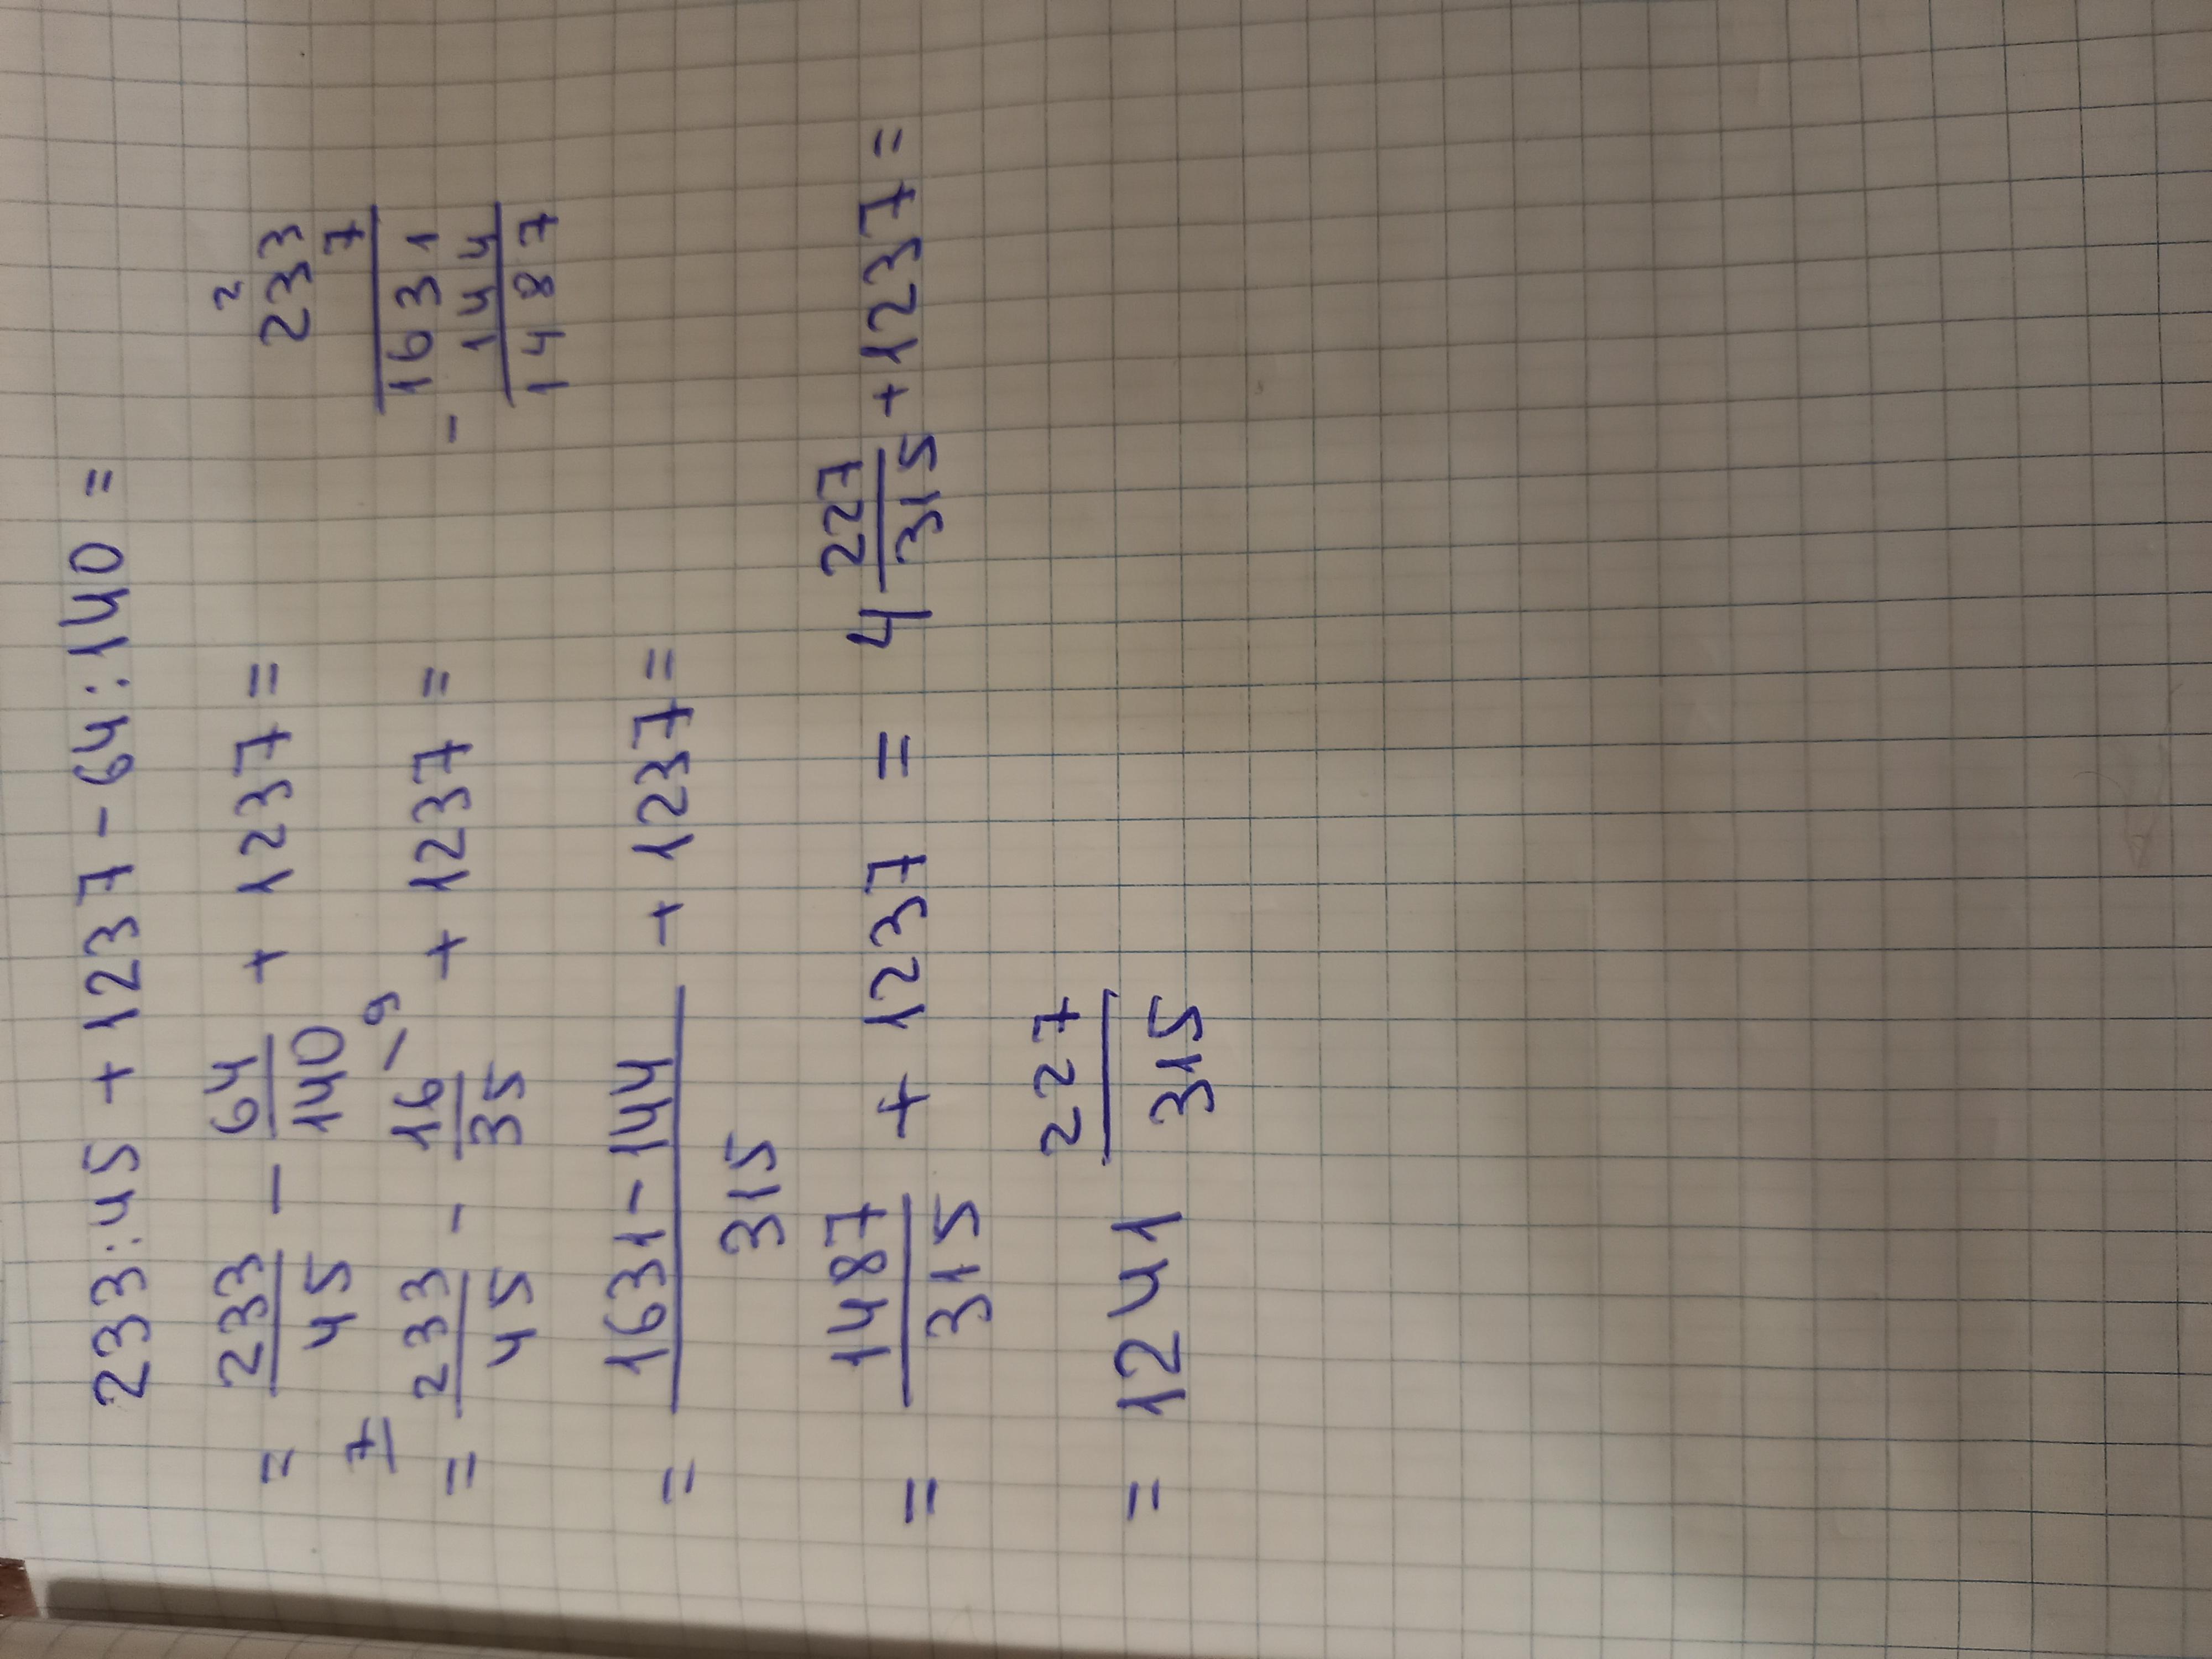 233:45 + 1237 - 64:140 =
= 233/45 - 64/140 + 1237 =
= 7 233/45 - 16/35 9 + 1237 =
= 1631-144/315 + 1237 =
= 1487/315 + 1237 = 4 227/315 + 1237 =
= 1241 227/315
2
233
7
1631
- 144
1487